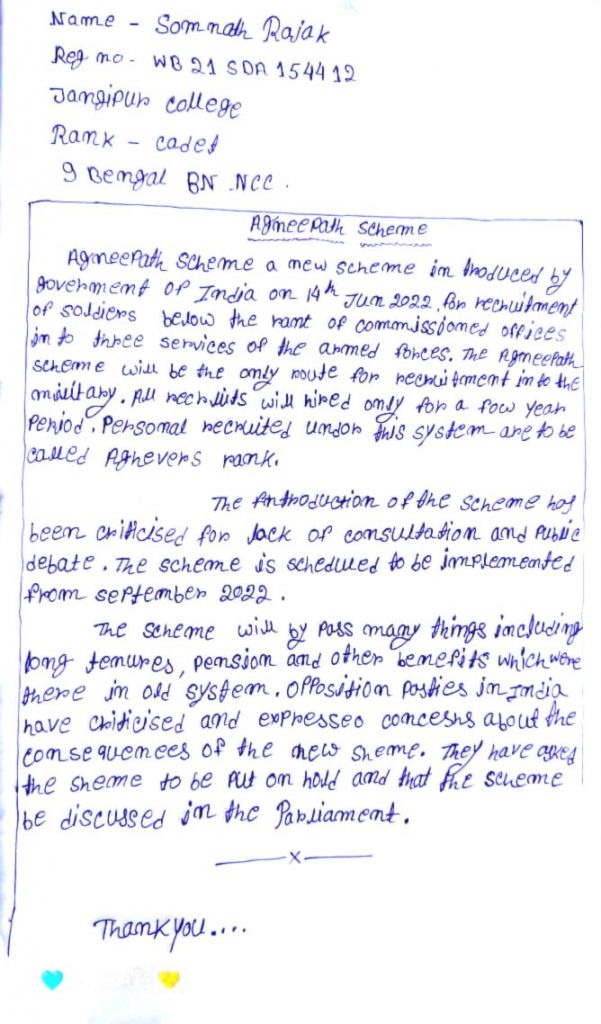 Name - Somnath Rajak
Reg no - WB 21 SDA 154412
Jangipur college
Rank - cadet
9 Bengal BN NCC.
Agneepath scheme
Agneepath scheme a new scheme in troduced by
goverment of India on 14th Jun 2022, for recruitment
of soldiers below the rant of commissioned offices
in to three services of the armed forces. The Agneepath
scheme will be the only route for recruitment in to the
military. All recruits will hired only for a fow year
Period. Personal recruited undor this system are to be
called Aghevers rank.
The Introduction of the scheme has
been criticised for lack of consultation and Public
debate. The scheme is scheduled to be implemented
from september 2022.
The scheme will by pass many things including
long tenures, pension and other benefits which were
there in old system. Opposition parties in India
have criticised and expressed concerns about the
consequencees of the new sheme. They have asked
the sheme to be put on hold and that the scheme
be discussed in the Parliament.
x
Thank you....